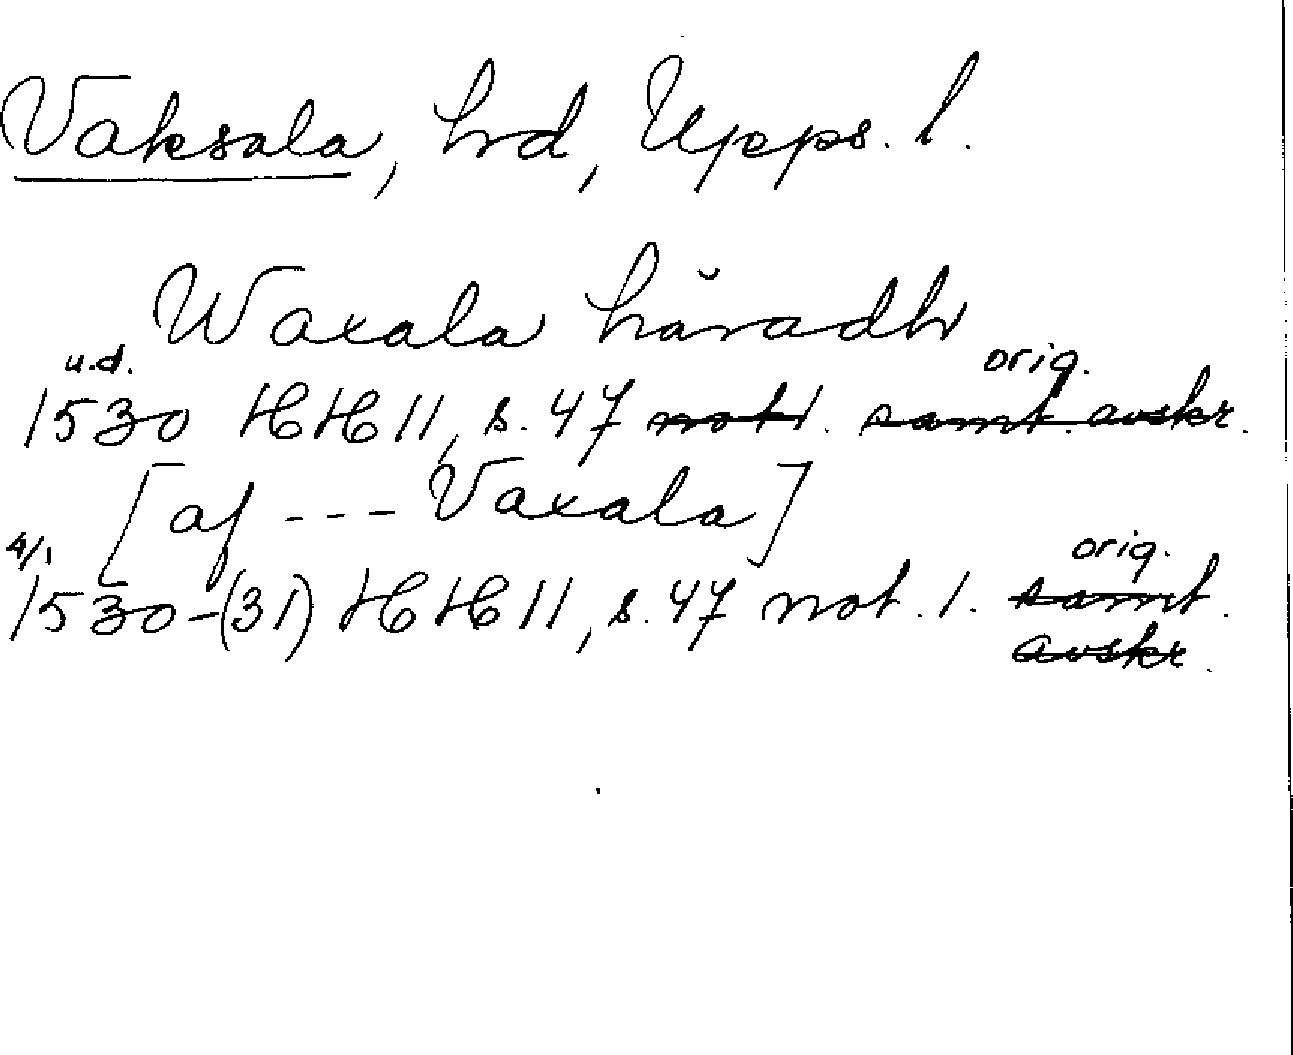 Vaksala, hrd, Upps. l.
Waxala häradh
u.d. orig.
1530 HH 11, s. 47 not 1. samt. avskr.
[af --- Vaxala]
4/1 orig.
1530-(31) HH 11, s. 47 not. 1. samt.
avskr.